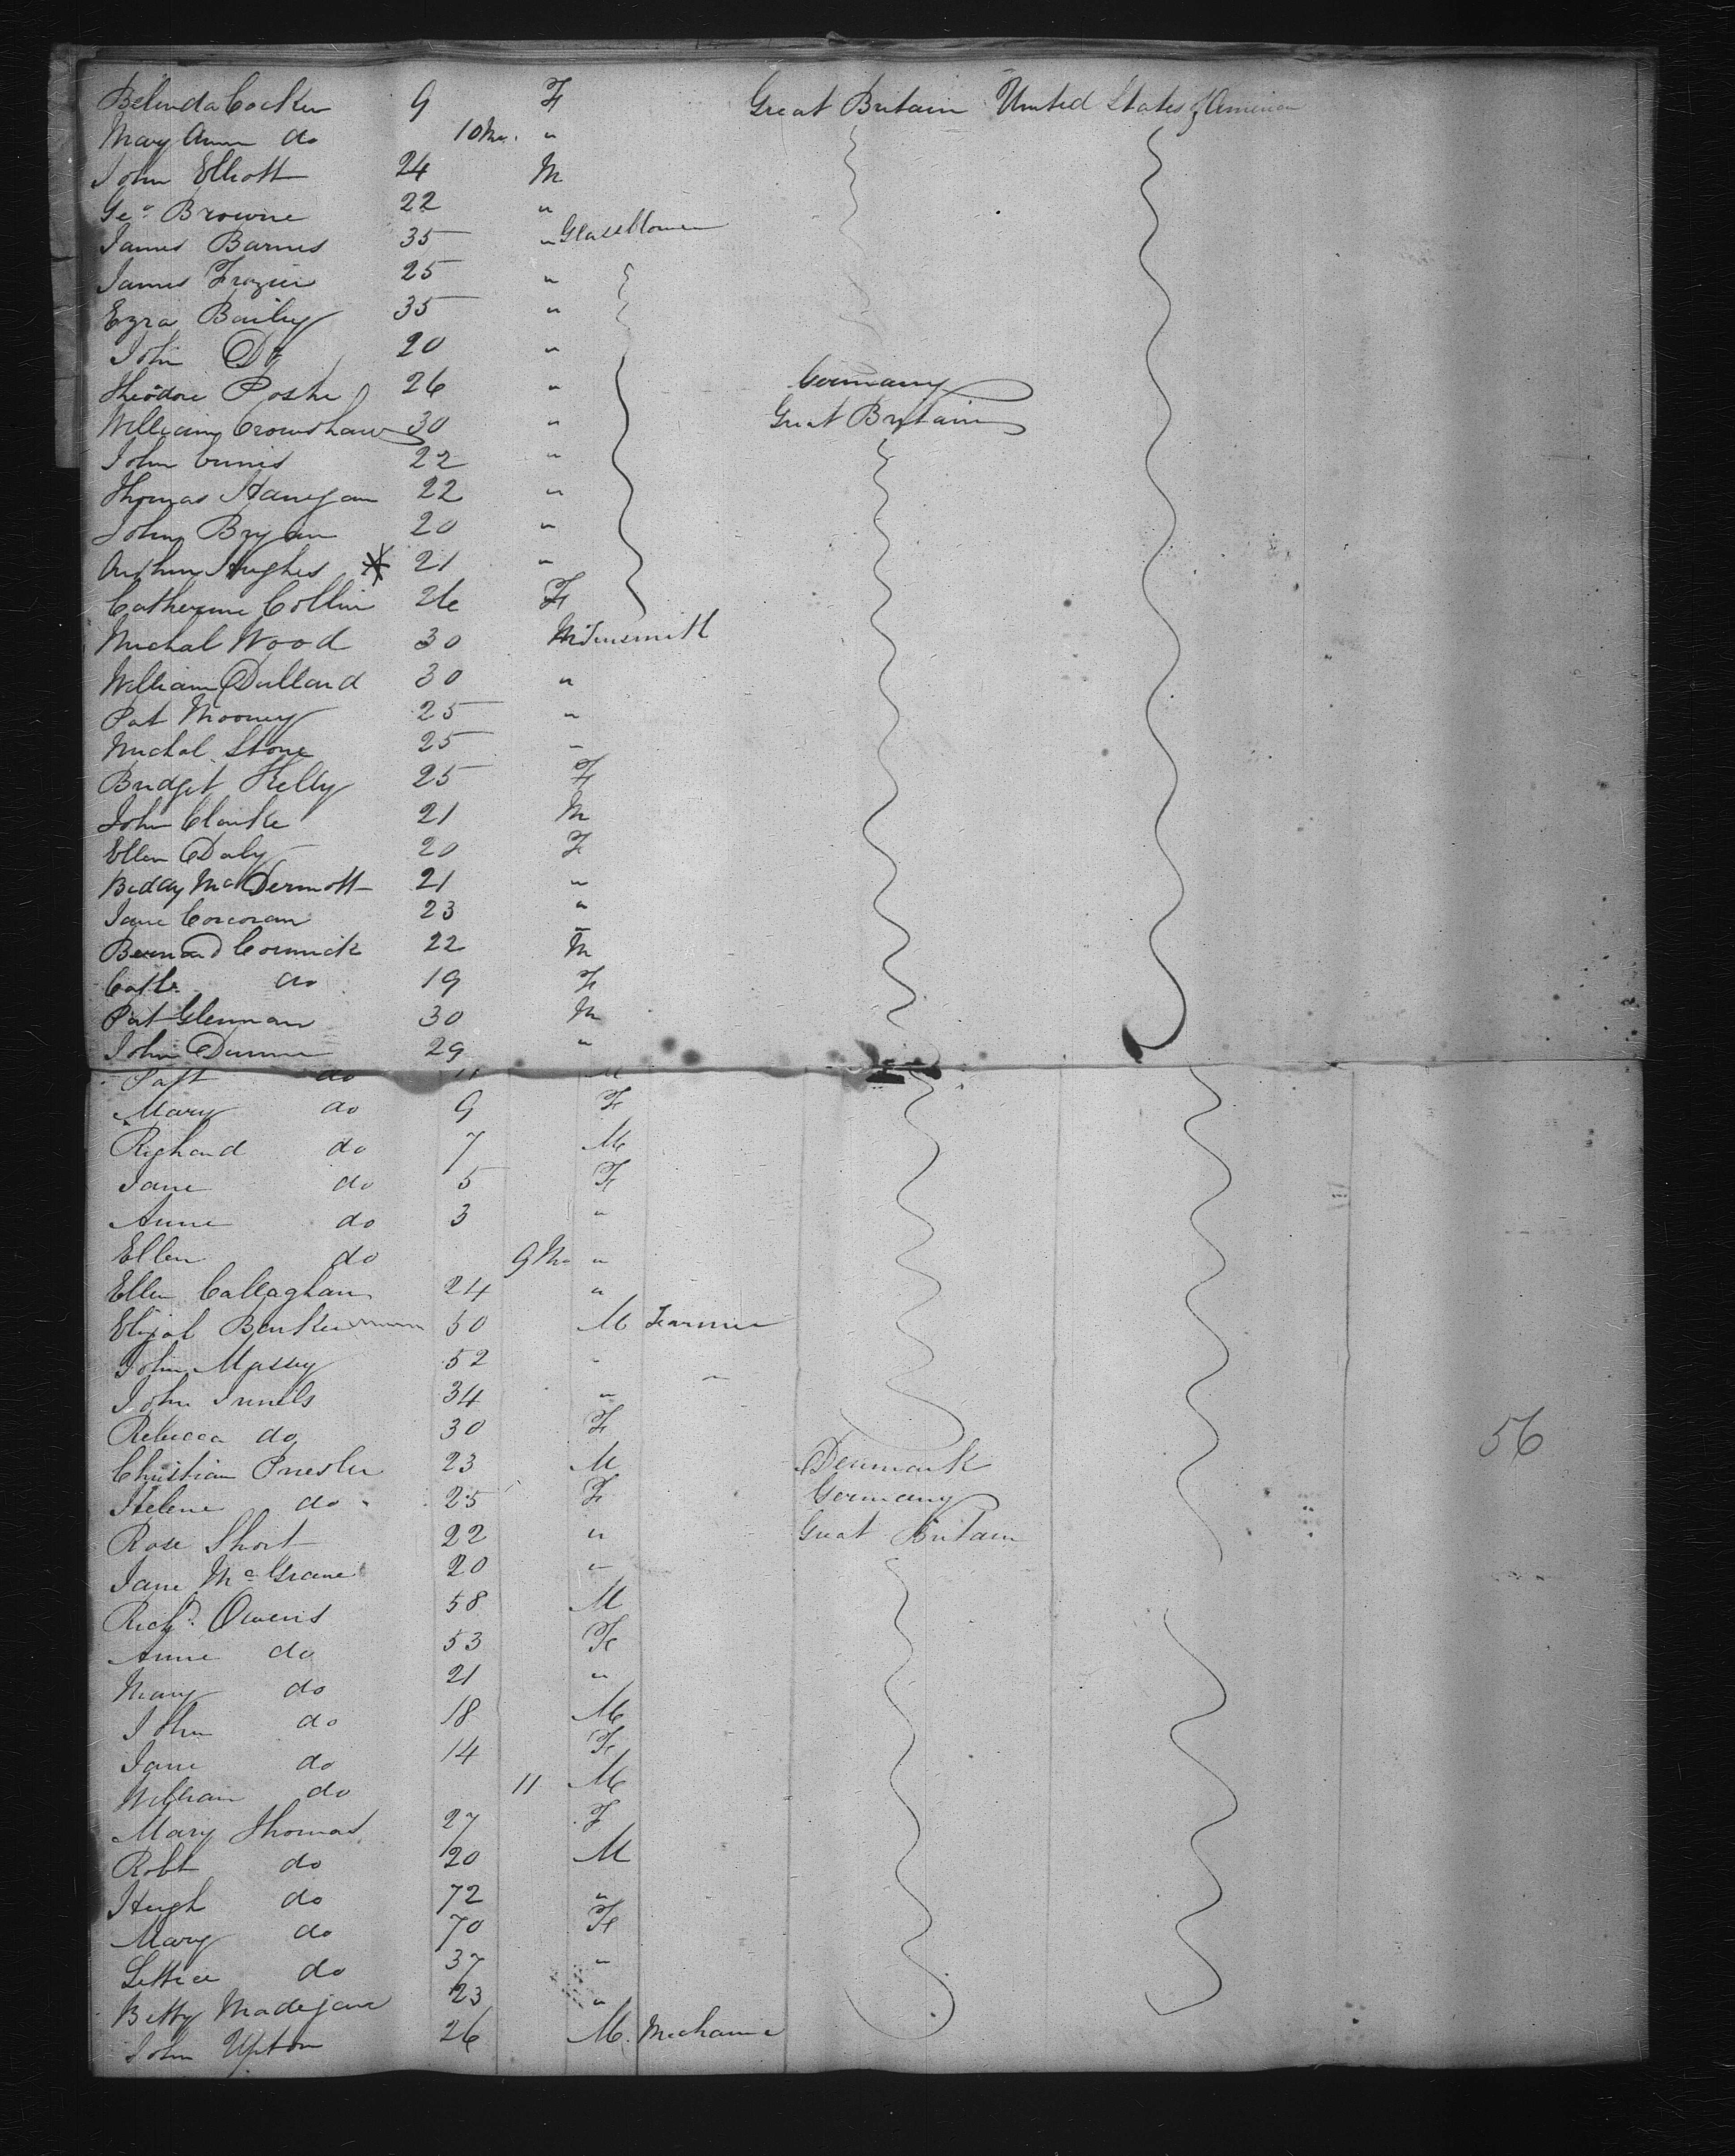 Belinda Cocker 9 F Great Britain United States of America
Mary Ann do 10 Mo. "
John Elliott 24 M
Geo. Browne 22 "
James Barnes 35 " Glassblower
James Frazier 25 "
Ezra Baily 35 "
John Do 20 "
Theodore 26 " Germany
William Crowshaw 30 " Great Britain
John 22 "
Thomas Hanegan 22 "
John Bryan 20 "
Arthur Hughes * 21 "
Catherine Collin 26 F
Michal Wood 30 M Tinsmith
William Dullard 30 "
Pat Mooney 25 "
Michal Stone 25 "
Bridget Kelly 25 F
John Clarke 21 M
Ellen Daly 20 F
Biddy McDermott 21 "
Jane Corcoran 23 "
Bernard Cormick 22 M
Cathe. do 19 F
Pat Glennan 30 M
John Dunne 29 "
Patt do 11 M
Mary do 9 F
Richard do 7 M
Jane do 5 F
Anne do 3 "
Ellen do 9 Mo "
Ellen Callaghan 24 "
Elijah Barker 50 M Farmer
John Massey 52 " "
John 34 "
Rebecca do 30 F
Christian Priesler 23 M Denmark
Helene do 25 F Germany
Rose Short 22 " Great Britain
Jane McGrane 20 "
Richd. Owens 58 M
Anne do 53 F
Mary do 21 "
John do 18 M
Jane do 14 F
William do 11 M
Mary Thomas 27 F
Robt do 20 M
Hugh do 72 "
Mary do 70 F
Lettice do 37 "
Betty 23 "
John Upton 26 M. Mechanic
56